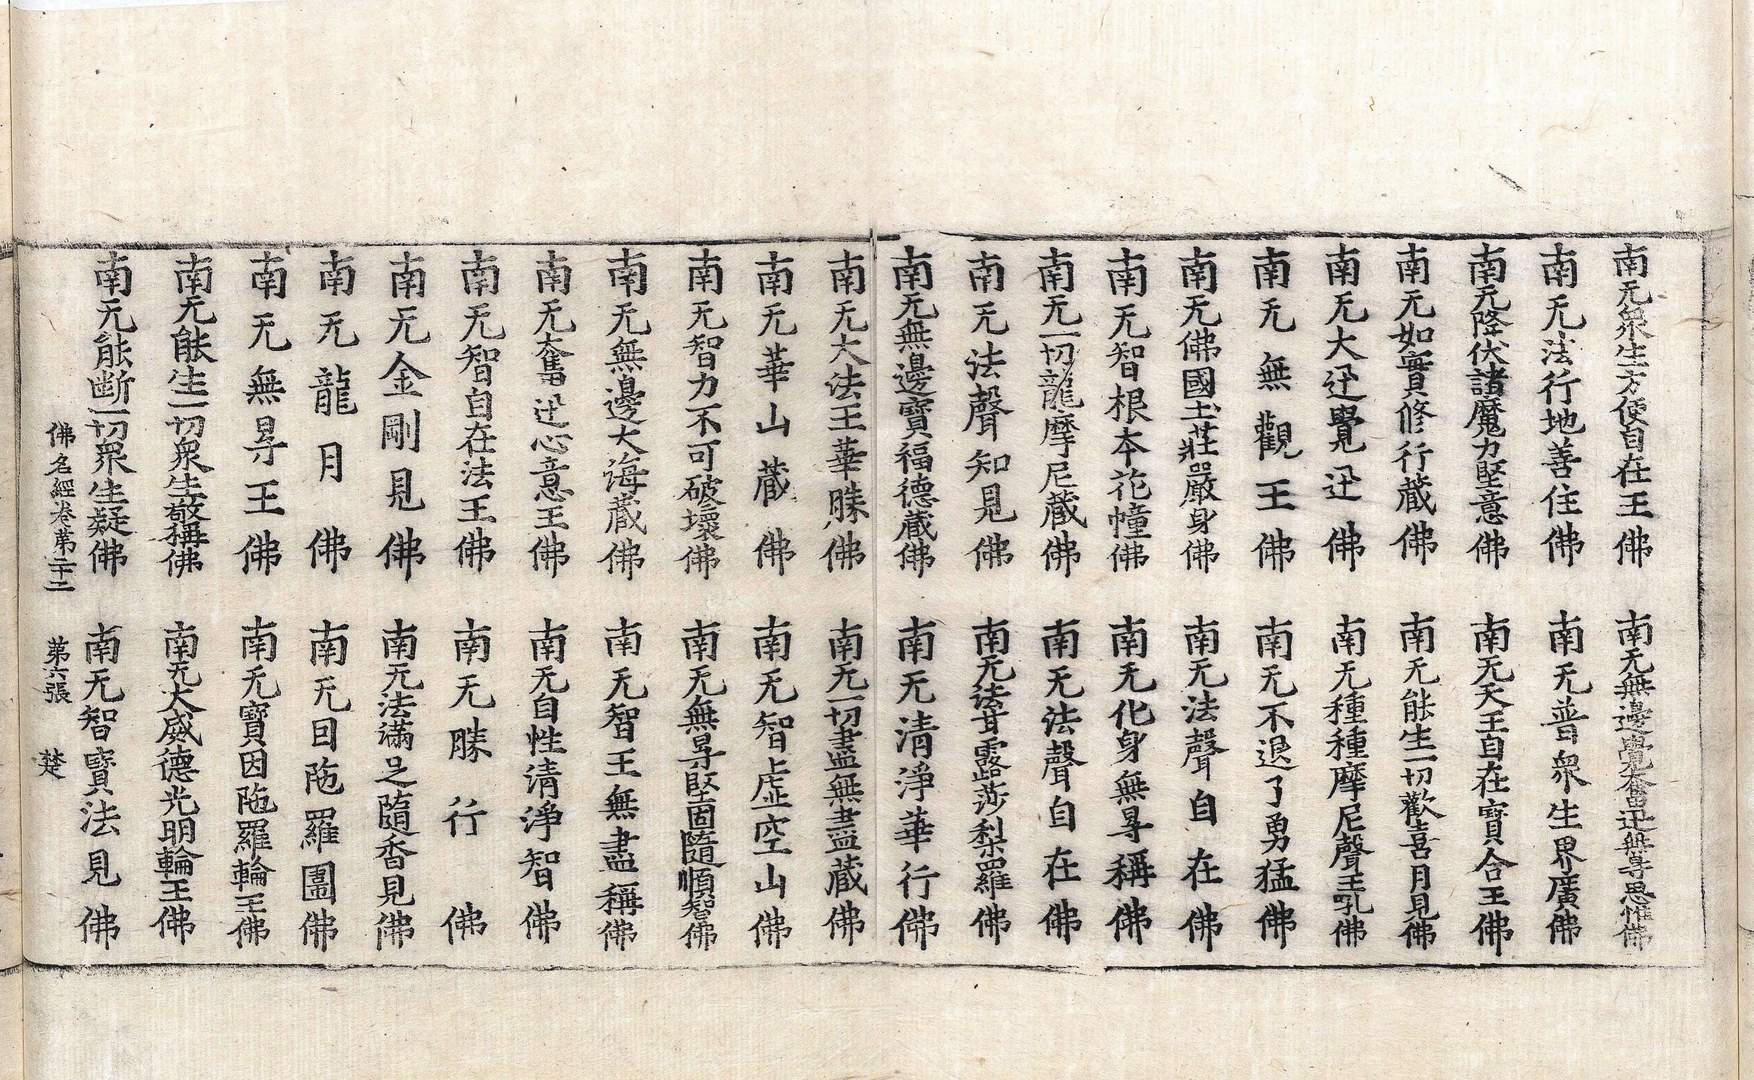 南无衆生方便自在王佛　南无無邊覺奮迅無㝵思惟佛
南无法行地善住佛　南无普衆生界廣佛
南无降伏諸魔力堅意佛　南无天王自在寶合王佛
南无如實修行藏佛　南无能生一切歡喜月見佛
南无大迅覺迅佛　南无種種摩尼聲王吼佛
南无無觀王佛　南无不退了勇猛佛
南无佛國土莊嚴身佛　南无法聲自在佛
南无智根本花幢佛　南无化身無㝵稱佛
南无一切龍摩尼藏佛　南无法聲自在佛
南无法聲知見佛　南无法甘露莎梨羅佛
南无無邊寶福德藏佛　南无清淨華行佛
南无大法王華勝佛　南无一切盡無盡藏佛
南无華山藏佛　南无智虛空山佛
南无智力不可破壞佛　南无無㝵堅固隨順智佛
南无無邊大海藏佛　南无智王無盡稱佛
南无奮迅心意王佛　南无自性清淨智佛
南无智自在法王佛　南无勝行佛
南无金剛見佛　南无法滿足隨香見佛
南无龍月佛　南无因陁羅圍佛
南无無㝵王佛　南无寶因陁羅輪王佛
南无能生一切衆生敬稱佛　南无大威德光明輪王佛
南无能斷一切衆生疑佛　南无智寶法見佛
佛名經卷第二十二　第六張　楚